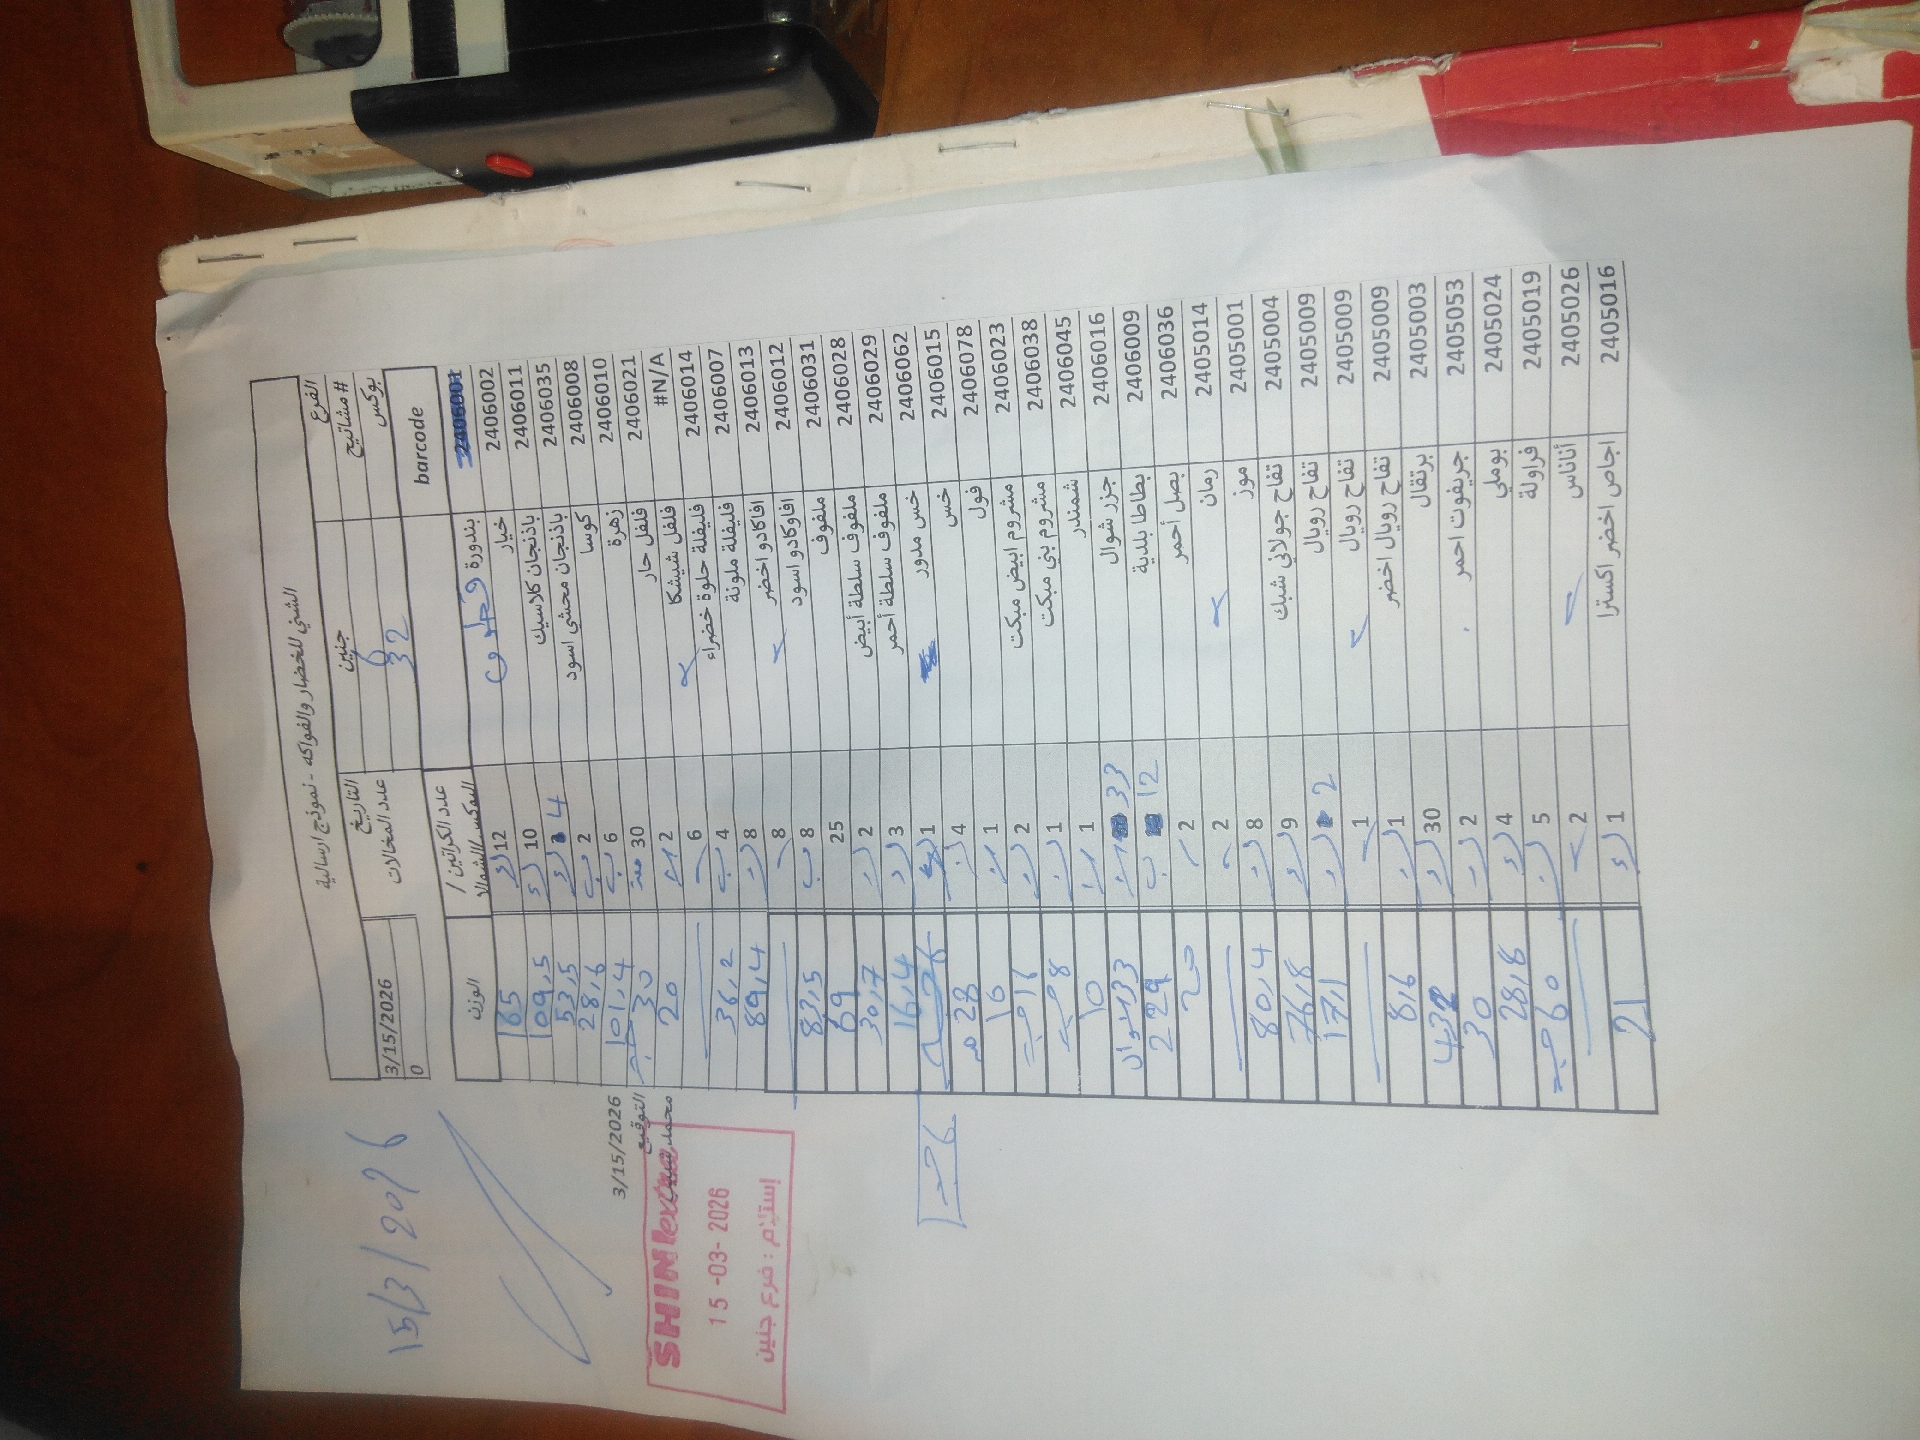 الشني للخضار والفواكه - نموذج ارسالية
الفرع جنين التاريخ 3/15/2026
# مشاتيح 6 عدد المخالات 0
بوكس 32
barcode عدد الكراتين / البوكس/الشوالا الوزن
2406001 بندورة
2406002 خيار 12 165
2406011 باذنجان كلاسيك 10 109,5
2406035 باذنجان محشي اسود 4 53,5
2406008 كوسا 2 28,6
2406010 زهرة 6 101,4
2406021 فلفل حار 30 30
#N/A فلفل شيشكا 2 20
2406014 فليفلة حلوة خضراء 6
2406007 فليفلة ملونة 4 36,2
2406013 افاكادو اخضر 8 89,4
2406012 افاوكادو اسود 8
2406031 ملفوف 8 83,5
2406028 ملفوف سلطة أبيض 25 69
2406029 ملفوف سلطة أحمر 2 30,7
2406062 خس مدور 3 16,4
2406015 خس 1
2406078 فول 4 28
2406023 مشروم ابيض مبكت 1 16
2406038 مشروم بني مبكت 2 16
2406045 شمندر 1 8
2406016 جزر شوال 1 10
2406009 بطاطا بلدية 33 33 شوال
2406036 بصل أحمر 12 229
2405014 رمان 2
2405001 موز 2
2405004 تفاح جولاني شبك 8 80,4
2405009 تفاح رويال 9 76,8
2405009 تفاح رويال 2 17,1
2405009 تفاح رويال اخضر 1
2405003 برتقال 1 8,6
2405053 جريفوت احمر 30 432
2405024 بوملي 2 30
2405019 فراولة 4 28,8
2405026 أناناس 5 60
2405016 اجاص اخضر اكسترا 2
1 21
15/3/2026
3/15/2026
التوقيع
محمد
SHINI extra
15 -03- 2026
إستلام : فرع جنين